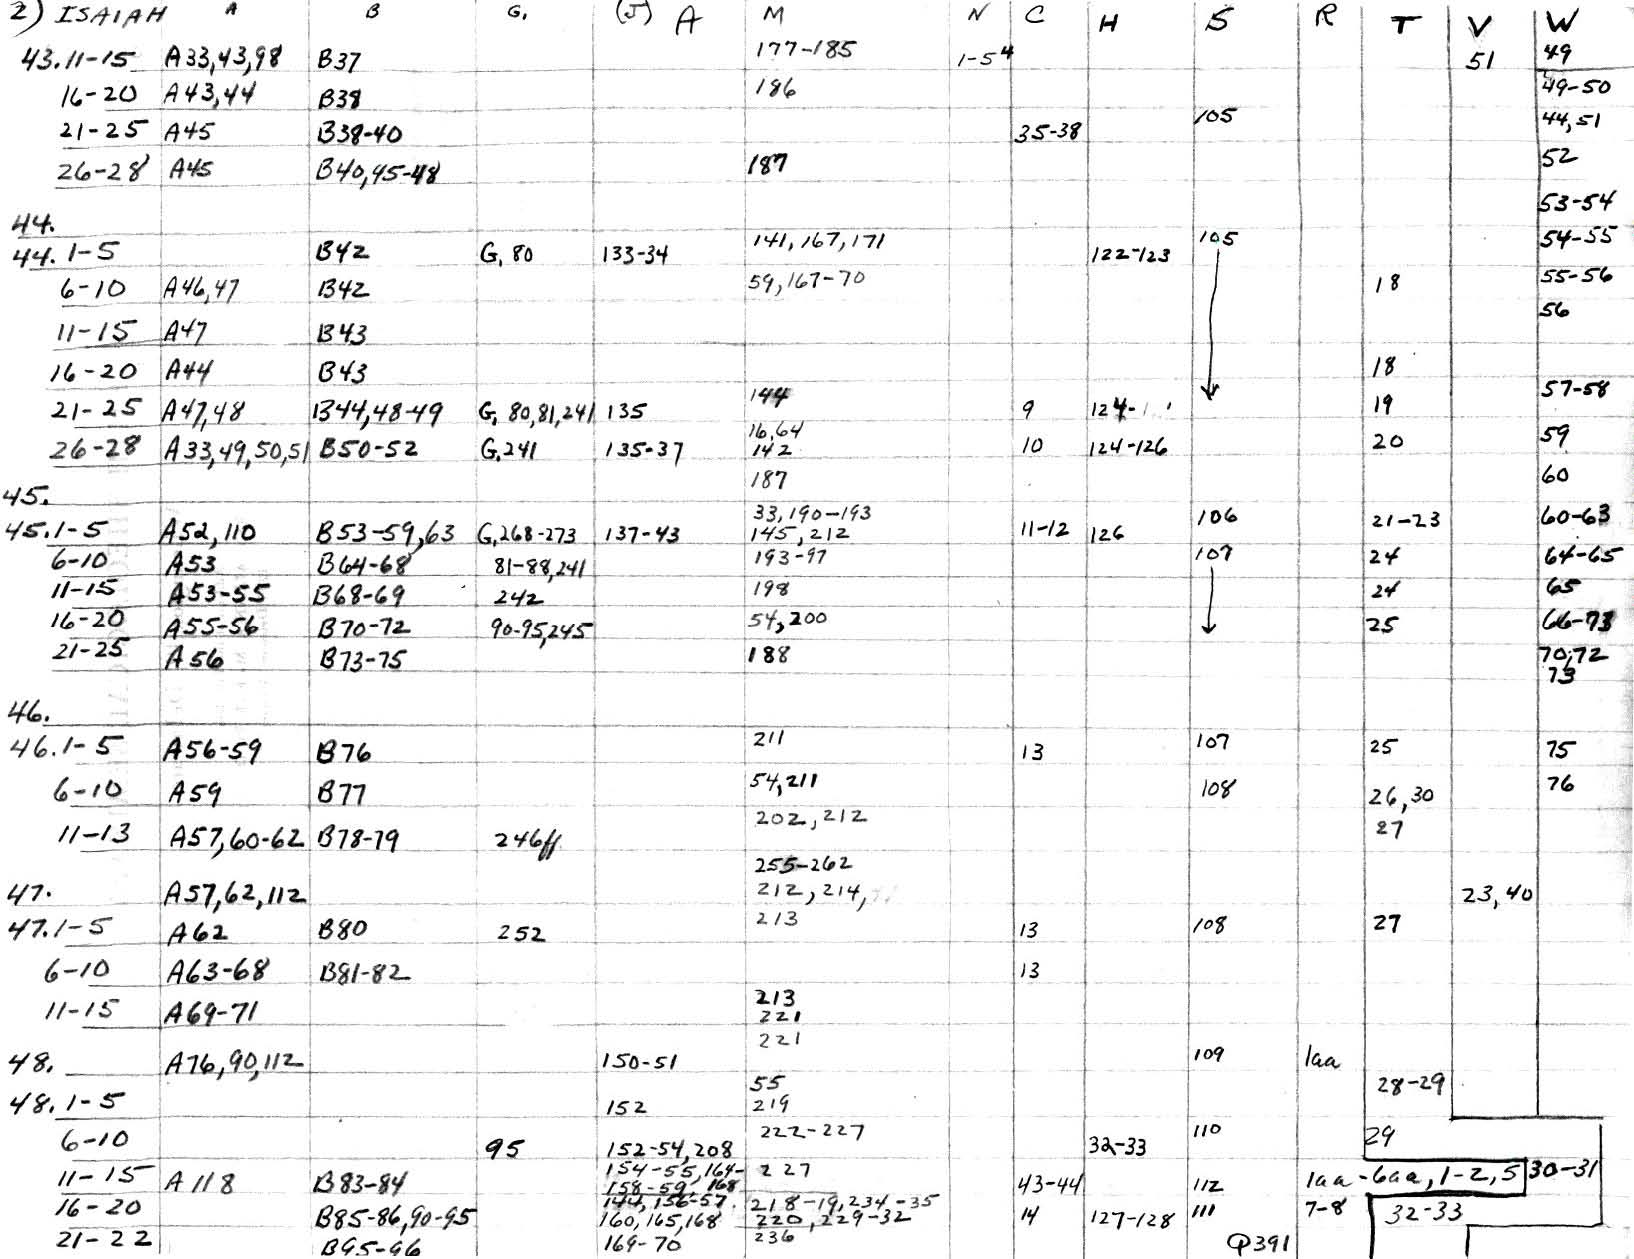 2) ISAIAH A B G, (J) A M N C H S R T V W
43.11-15 A33,43,98 B37 177-185 1-54 51 49
16-20 A43,44 B38 186 49-50
21-25 A45 B38-40 35-38 105 44,51
26-28 A45 B40,45-48 187 52
53-54
44.
44.1-5 B42 G,80 133-34 141,167,171 122-123 105 54-55
6-10 A46,47 B42 59,167-70 18 55-56
11-15 A47 B43 56
16-20 A44 B43 18
21-25 A47,48 B44,48-49 G,80,81,241 135 144 9 19 57-58
16,64
26-28 A33,49,50,51 B50-52 G,241 135-37 142 10 124-126 20 59
187 60
45.
33,190-193
45.1-5 A52,110 B53-59,63 G,268-273 137-43 145,212 11-12 126 106 21-23 60-63
6-10 A53 B64-68 81-88,241 193-97 107 24 64-65
11-15 A53-55 B68-69 242 198 24 65
16-20 A55-56 B70-72 90-95,245 54,200 25 66-73
21-25 A56 B73-75 188 70,72
73
46.
46.1-5 A56-59 B76 211 13 107 25 75
6-10 A59 B77 54,211 108 26,30 76
202,212 27
11-13 A57,60-62 B78-79 246ff
255-262
47. A57,62,112 212,214, 23,40
47.1-5 A62 B80 252 213 13 108 27
6-10 A63-68 B81-82 13
213
11-15 A69-71 221
221
48. A76,90,112 150-51 109 1aa
55 28-29
48.1-5 152 219
6-10 95 152-54,208 222-227 32-33 110 29
11-15 A118 B83-84 154-55,164- 227 43-44 112 1aa-6aa,1-2,5 30-31
158-59, 168
16-20 B85-86,90-95 144,156-57. 218-19,234-35 14 127-128 111 7-8 32-33
160,165,168 220,229-32
21-22 B95-96 169-70 236 Q391